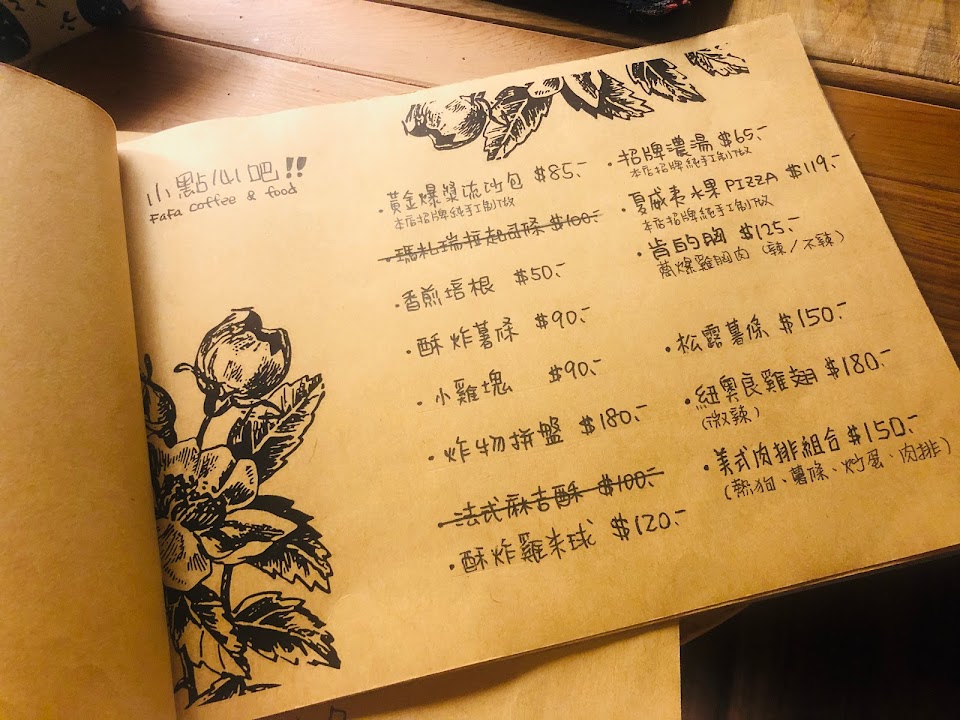 小點心吧!!
FaFa coffee & food
·黃金爆漿流沙包 $85.-
本店招牌純手工制做
·瑪札瑞拉起司條 $100.-
·香煎培根 $50.-
·酥炸薯條 $90.-
·小雞塊 $90.-
·炸物拼盤 $180.-
·法式麻吉酥 $100.-
·酥炸雞米球 $120.-
·招牌濃湯 $65.-
本店招牌純手工制做
·夏威夷水果PIZZA $119.-
本店招牌純手工制做
·肯的胸 $125.-
薦爆雞胸肉 (辣/不辣)
·松露薯條 $150.-
·紐奧良雞翅 $180.-
(微辣)
·美式肉排組合 $150.-
(熱狗、薯條、炒蛋、肉排)